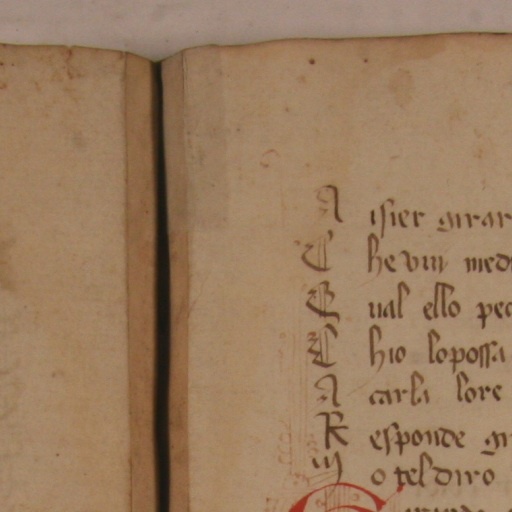 A isier girar
C he vui med
Q ual ello pec
C hio lopossa
A carli lore
R esponde gi
m o tel diro